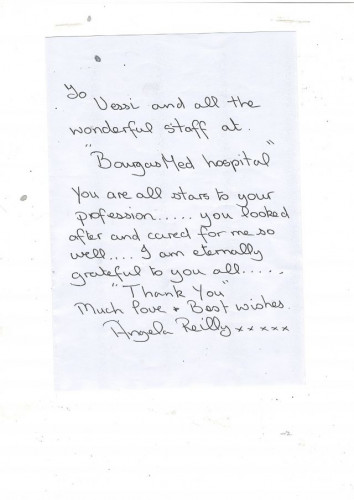 To
Vessi and all the
wonderful staff at.
"BourgasMed hospital"
You are all stars to your
profession..... you looked
after and cared for me so
well.... I am eternally
grateful to you all.....
"Thank You"
Much love + Best wishes.
Angela Reilly xxxxx